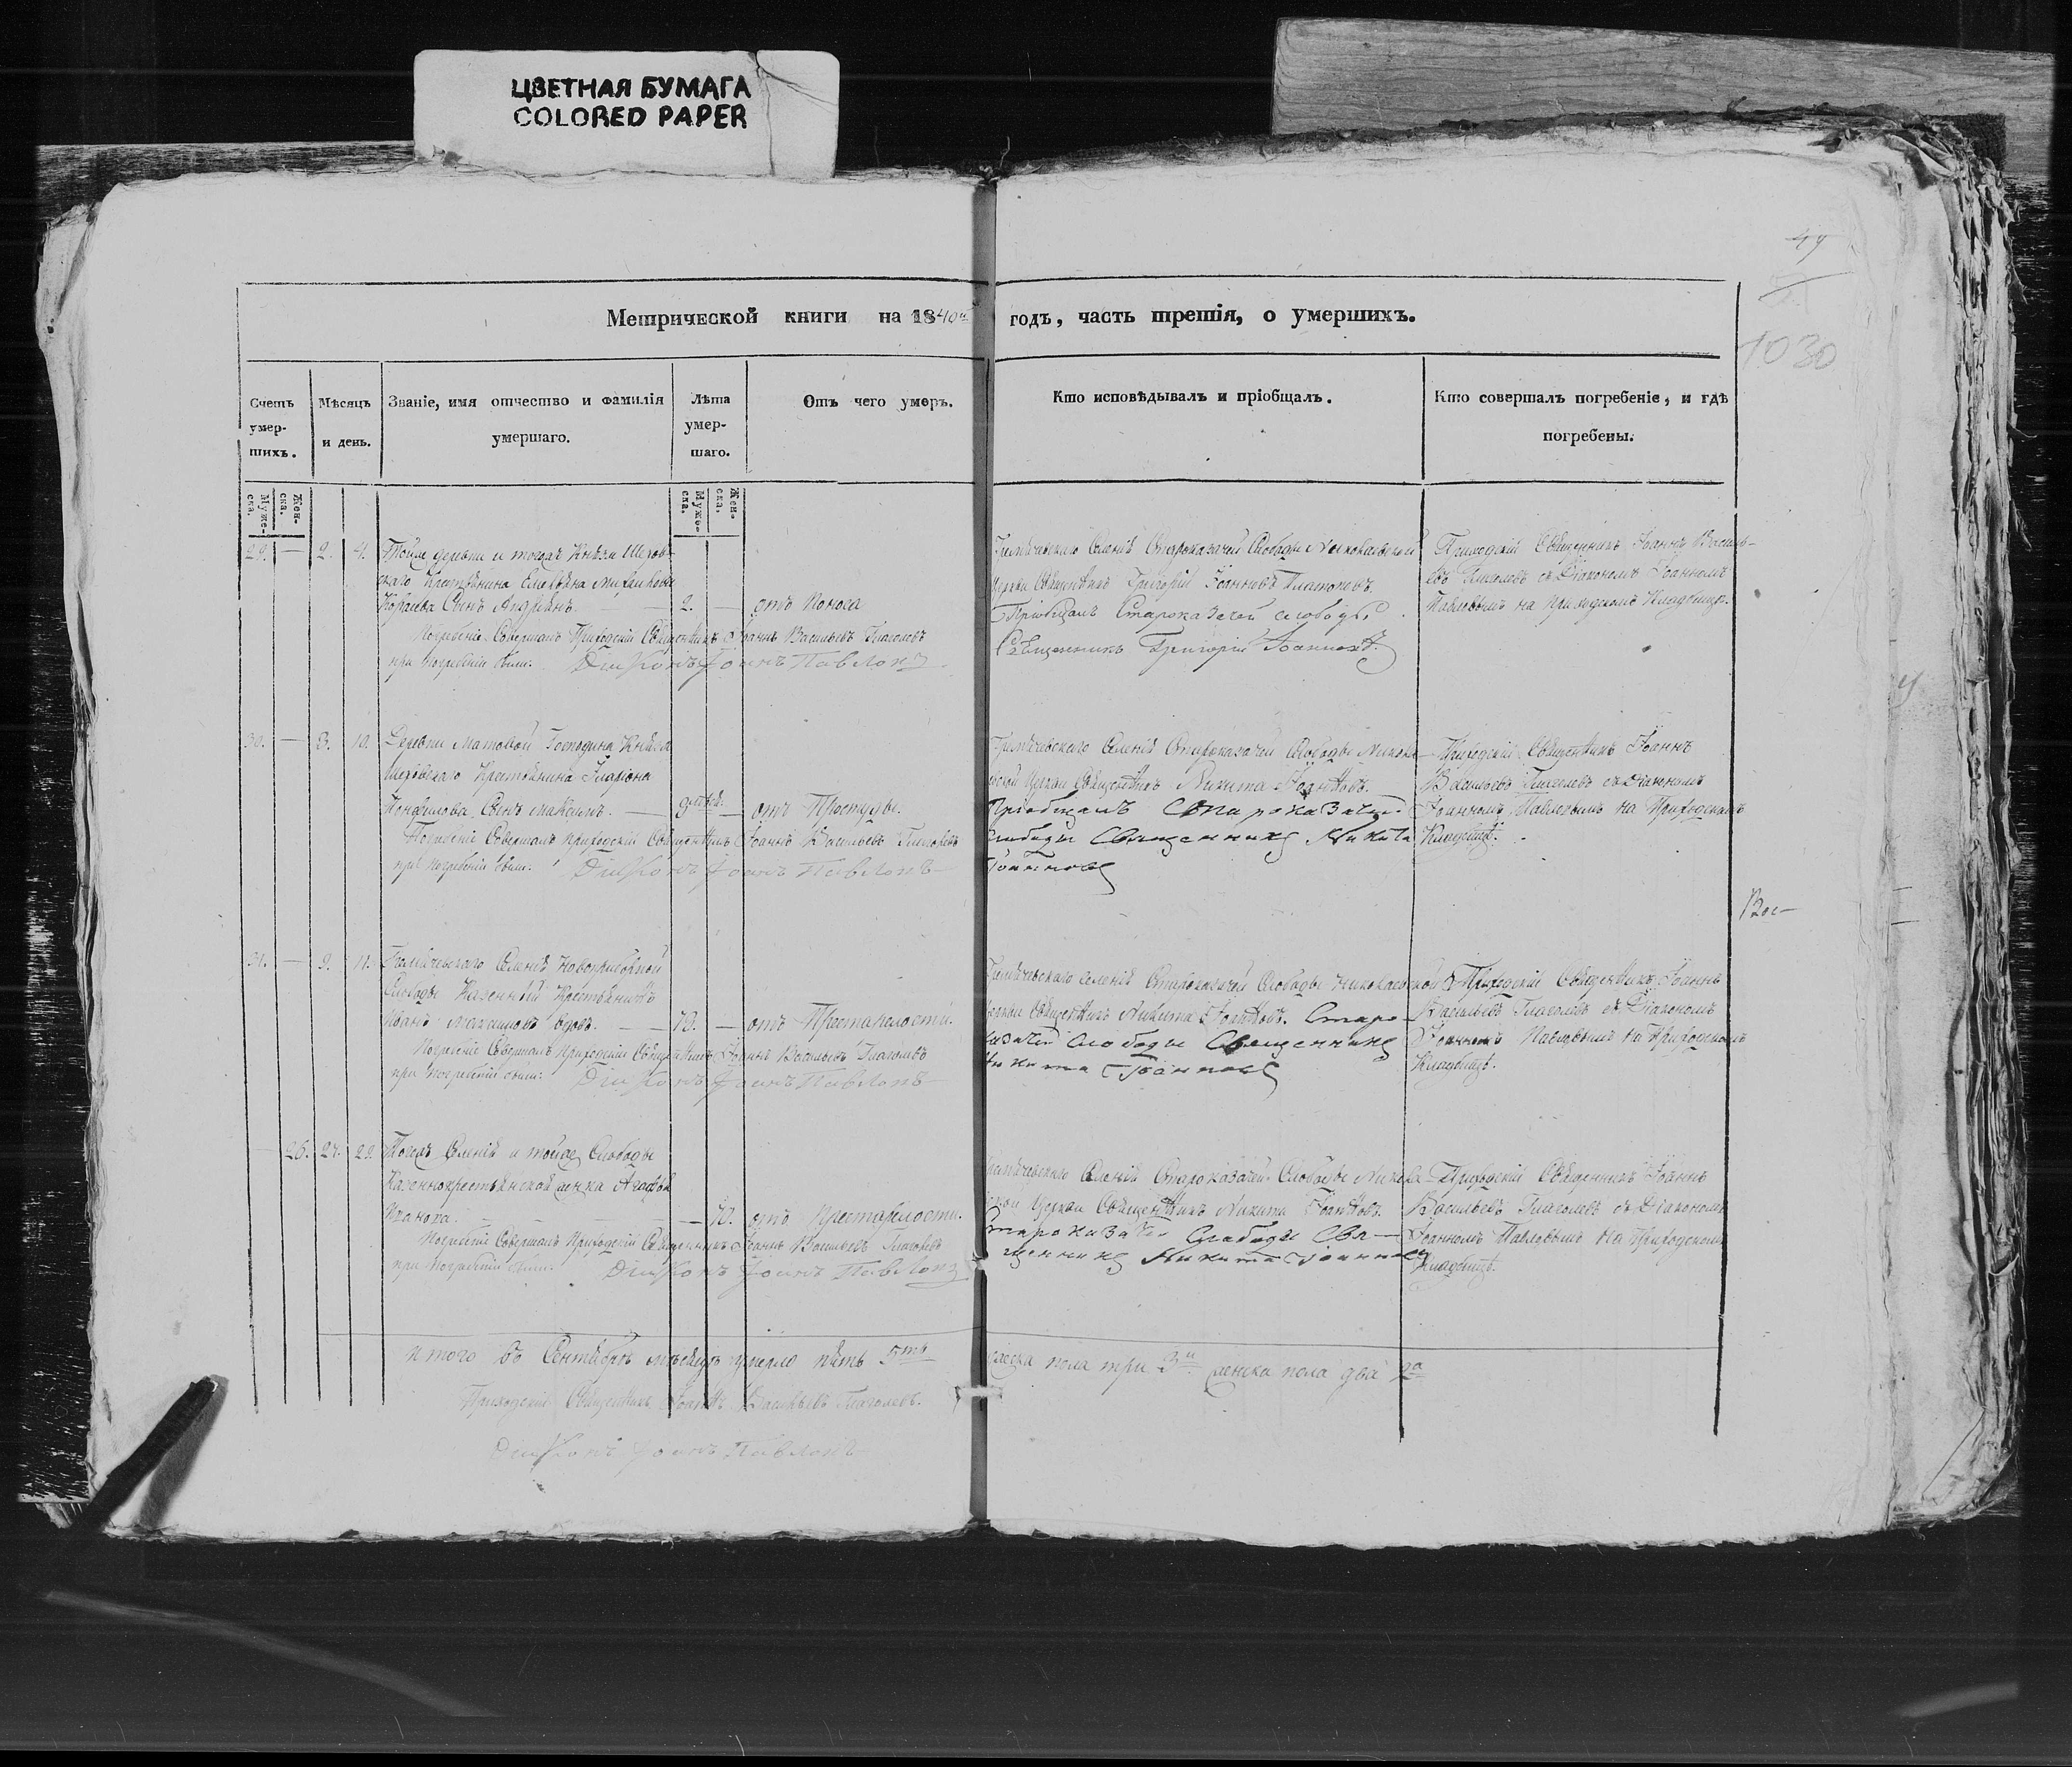 ЦВЕТНАЯ БУМАГА
COLORED PAPER
49
1030
Метрической книги на 1840й годъ, часть третія, о умершихъ.
Счетъ умер-шихъ.
Мѣсяцъ и день.
Званіе, имя отчество и фамилія умершаго.
Лѣта умер-шаго.
Отъ чего умеръ.
Кто исповѣдывалъ и пріобщалъ.
Кто совершалъ погребеніе, и гдѣ погребены.
Муже-ска.
Жен-ска.
Муже-ска.
Жен-ска.
29. — 2. 4. Тойже деревни и тогожъ Князя
Крестьянина Михайлова
Сынъ Андрѣянъ. — 2. — отъ Поноса
Погребеніе Совершалъ Приходскій Священникъ Іоаннъ Васильевъ Глаголевъ
при погребеніи были: Діяконъ Іоанъ Павловъ
селенія Староказачей Слободы Николаевской
церкви Священникъ Григорій Іоанновъ Платоновъ.
Пріобщалъ Староказачей слободы
Священникъ Григорій Іоанновъ.
Приходскій Священникъ Іоаннъ Василь-
евъ Глаголевъ съ Діакономъ Іоанномъ
Павловымъ на приходскомъ Кладбищѣ.
30. — 8. 10. Деревни Матовой Господина Князя
Крестьянина Иларіона
Сынъ Максимъ. — — отъ Простуды.
Погребеніе Совершалъ приходскій Священникъ Іоаннъ Васильевъ Глаголевъ
при погребеніи были: Діяконъ Іоанъ Павловъ
селенія Староказачей Слободы Никола-
евской Церкви Священникъ Никита Іоанновъ.
Пріобщалъ Староказачей
слободы Священникъ Никита
Іоанновъ
Приходскій Священникъ Іоаннъ
Васильевъ Глаголевъ съ Діакономъ
Іоанномъ Павловымъ на Приходскомъ
Кладбищѣ.
31. — 9. 11. селенія
Слободы Казенный Крестьянинъ
Иванъ Максимовъ вдовъ. — 79. — отъ Престарелости.
Погребеніе Совершалъ приходскій Священникъ Іоаннъ Васильевъ Глаголевъ
при погребеніи были: Діяконъ Іоанъ Павловъ
селенія Староказачей Слободы Николаевской
церкви Священникъ Никита Іоанновъ. Старо-
казачей слободы Священникъ
Никита Іоанновъ
Приходскій Священникъ Іоаннъ
Васильевъ Глаголевъ съ Діакономъ
Іоанномъ Павловымъ на Приходскомъ
Кладбищѣ.
— 26. 27. 29. Тогожъ Селенія и тойже Слободы
— 70. отъ престарелости.
Погребеніе Совершалъ Приходскій Священникъ Іоаннъ Васильевъ Глаголевъ
при погребеніи были: Діяконъ Іоанъ Павловъ
селенія Староказачей Слободы Никола-
евской Церкви Священникъ Никита Іоанновъ.
Староказачей Слабоды Свя-
щенникъ Никита Іоанновъ
Приходскій Священникъ Іоаннъ
Васильевъ Глаголевъ съ Діакономъ
Іоанномъ Павловымъ на Приходскомъ
Кладбищѣ.
Итого въ Сентябрѣ мѣсяцѣ умерло пять 5ть мужеска пола три 3и женска пола два 2а
Приходскій Священникъ Іоаннъ Васильевъ Глаголевъ.
Діяконъ Іоанъ Павловъ